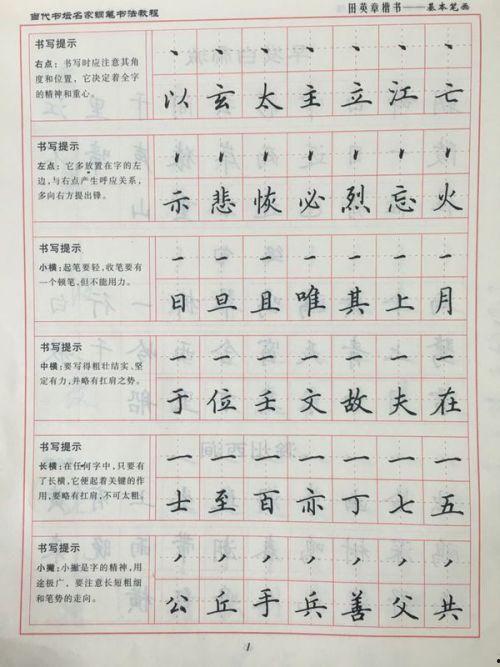 当代书坛名家钢笔书法教程
田英章楷书——基本笔画
书写提示
右点：书写时应注意其角
度和位置，它决定着全字
的精神和重心。
以玄太主立江亡
书写提示
左点：它多放置在字的左
边，与右点产生呼应关系，
多向右方提出锋。
示悲恢必烈忘火
书写提示
小横：起笔要轻，收笔要有
一个顿笔，但不能用力。
日旦且唯其上月
书写提示
中横：要写得粗壮结实、坚
定有力，并略有扛肩之势。
于位壬文故夫在
书写提示
长横：在任何字中，只要有
了长横，它便起着关键的作
用，要略有扛肩，不可太粗。
士至百亦丁七五
书写提示
小撇：小撇是字的精神，用
途极广，要注意长短粗细
和笔势的走向。
公丘手兵善父共
1